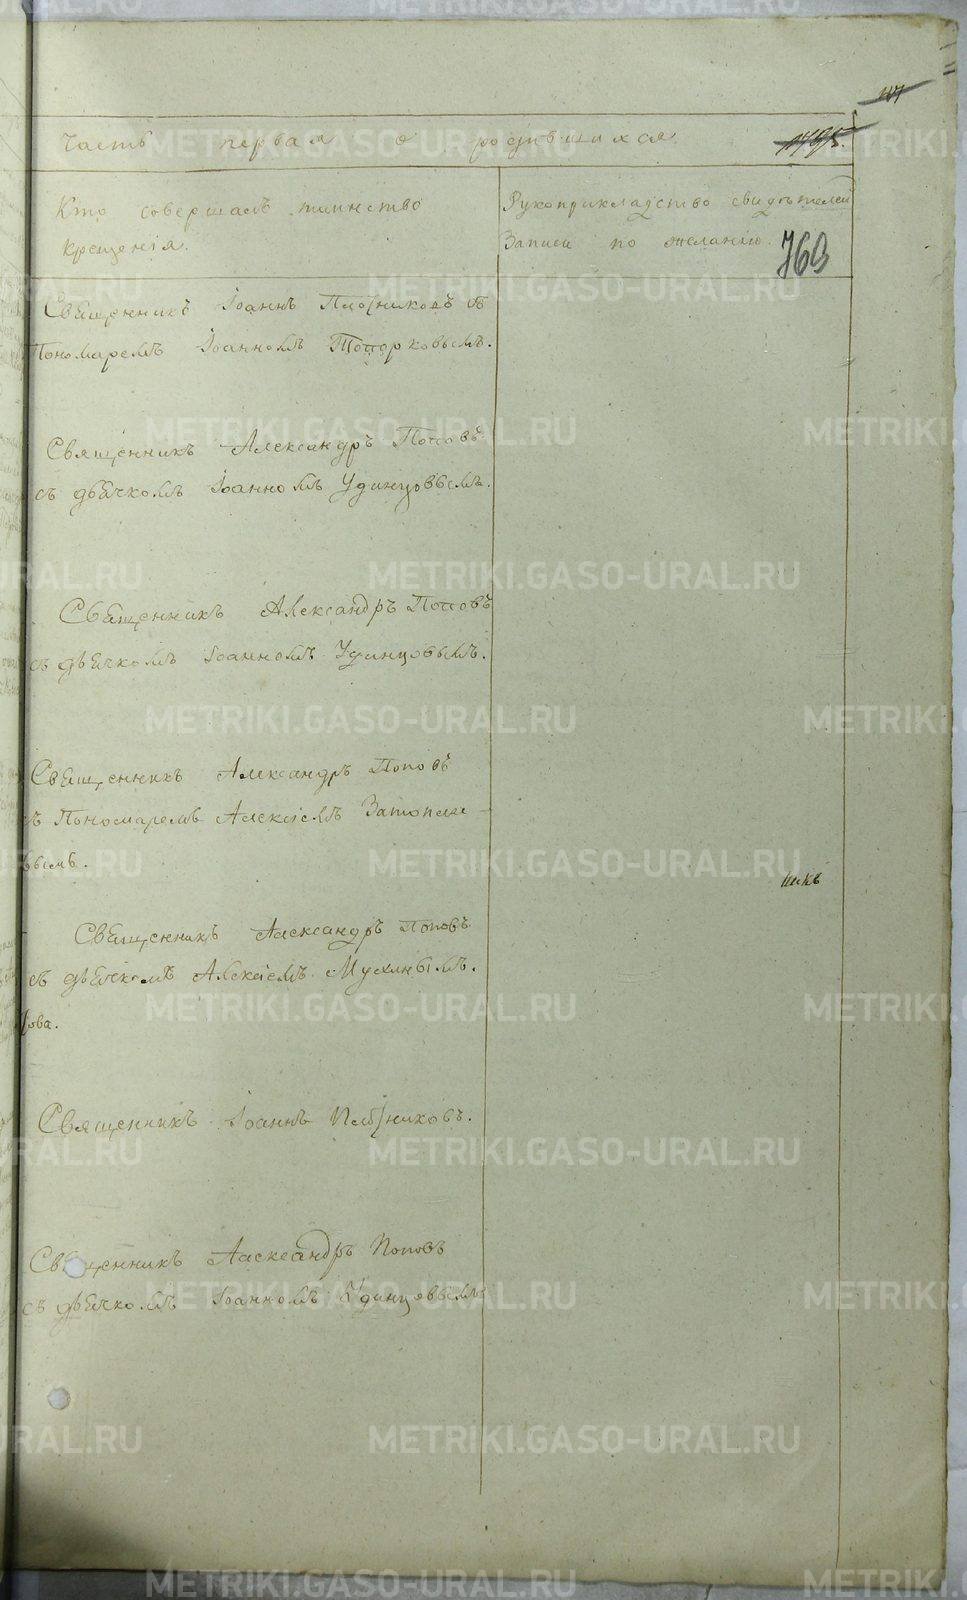 Часть первая о родившихся
Кто совершалъ таинство
крещенія.
Рукоприкладство свидѣтелей
Записи по желанію.
769
Священникъ Іоаннъ Плотниковъ съ
Пономаремъ Іоанномъ Топорковымъ.
Священникъ Александръ Поповъ
съ дьячкомъ Іоанномъ Удинцовымъ.
Священникъ Александръ Поповъ
съ дьячкомъ Іоанномъ Удинцовымъ.
Священникъ Александръ Поповъ
съ Пономаремъ Алексіемъ Затопля-
Священникъ Александръ Поповъ
съ дьячкомъ Алексіемъ Мухинымъ.
Священникъ Іоаннъ Плотниковъ.
Священникъ Александръ Поповъ
съ дьячкомъ Іоанномъ Удинцовымъ
METRIKI.GASO-URAL.RU